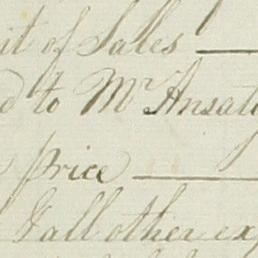 it of Sales
d to Mr Ansat
Price
& all other ex